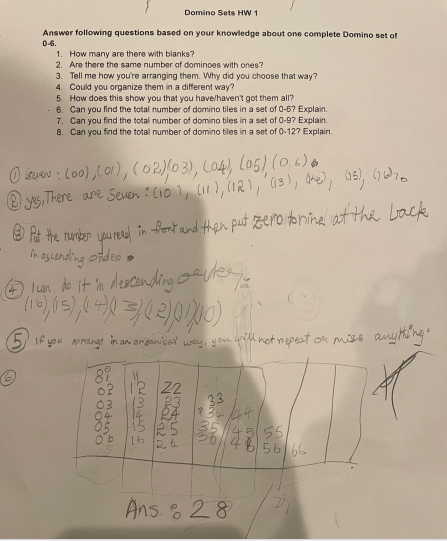 Domino Sets HW 1
Answer following questions based on your knowledge about one complete Domino set of
0-6.
1. How many are there with blanks?
2. Are there the same number of dominoes with ones?
3. Tell me how you're arranging them. Why did you choose that way?
4. Could you organize them in a different way?
5. How does this show you that you have/haven't got them all?
6. Can you find the total number of domino tiles in a set of 0-6? Explain.
7. Can you find the total number of domino tiles in a set of 0-9? Explain.
8. Can you find the total number of domino tiles in a set of 0-12? Explain.
① : (00), (01), (02)(03), (04), (05) (0.6)
② yes, There are Seven : (10), (11), (12), (13), (15), (16)
③ Put the number you need in front and then put zero to nine at the back
in ascending order.
④ I can do it in descending order.
(16), (15), (14)(13)(12)(11)(10)
⑤ If you arrange in an organised way, you will not repeat or miss anything.
⑥
01 11
02 12 22
03 13 23 33
04 14 24 34 44
05 15 25 35 45 55
06 16 26 36 46 56 66
Ans : 28